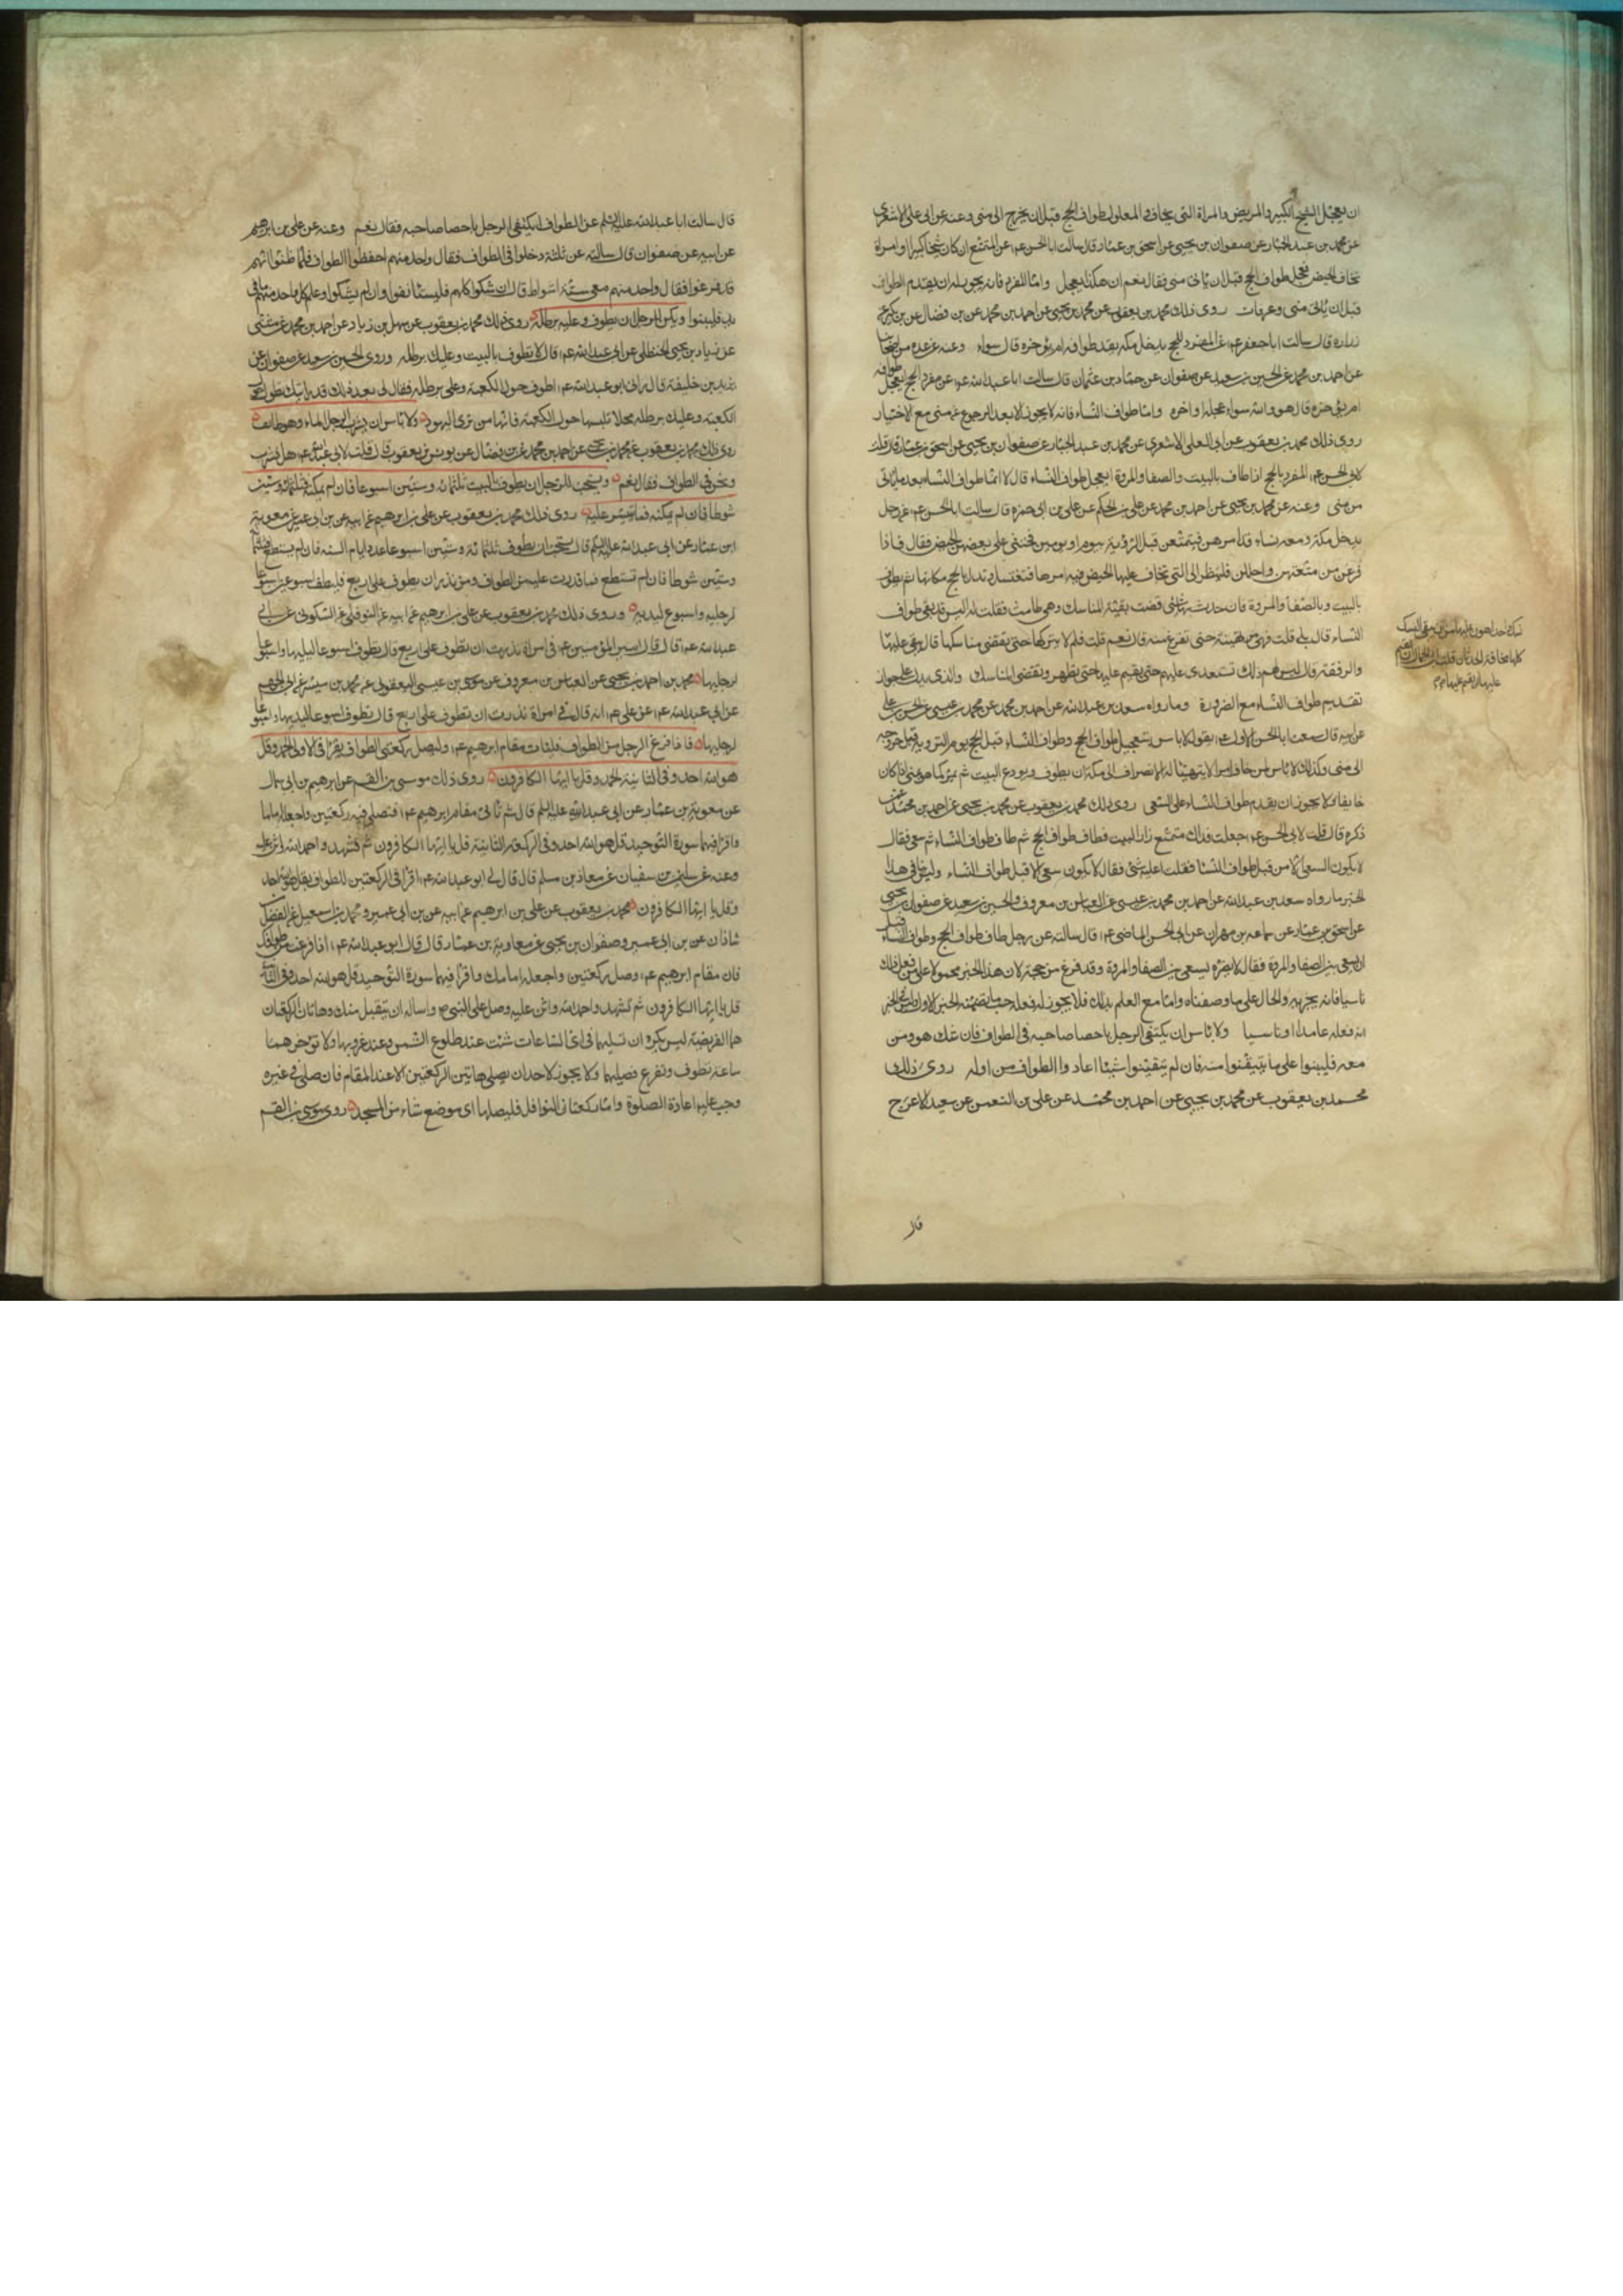 ان يعجل الشيخ الكبير والمريض والمراة التى يخاف والمعلول طواف الحج قبل ان يخرج الى منى وعنه عن ابى على الاشعرى
عن محمد بن عبد الجبار عن صفوان بن يحيى عن اسحق بن عمار قال سالت ابا الحسن ع عن المتمتع ان كان شيخا كبيرا او امراة
تخاف الحيض تعجل طواف الحج قبل ان ياتى منى فقال نعم من هكذا يعجل واما المفرد فانه يجوز له ان يقدم الطواف
قبل ان ياتى منى وعرفات روى ذلك محمد بن يعقوب عن محمد بن يحيى عن احمد بن محمد عن بن فضال عن بن بكير عن
زراره قال سالت ابا جعفر ع عن المفرد للحج يدخل مكه يقدم طوافه ام يؤخره قال سواء وعنه عن عده من اصحابنا
عن احمد بن محمد عن الحسين بن سعيد عن صفوان عن حماد بن عثمان قال سالت ابا عبد الله ع عن مفرد الحج ايعجل طوافه
ام يؤخره قال هو والله سواء عجله او اخره واما طواف النساء فانه لا يجوز الا بعد الرجوع من منى مع الاختيار
روى ذلك محمد بن يعقوب عن ابى على الاشعرى عن محمد بن عبد الجبار عن صفوان بن يحيى عن اسحق بن عمار قال قلت
لابى الحسن ع المفرد بالحج اذا طاف بالبيت والصفا والمروة ايعجل طواف النساء قال لا انما طواف النساء بعد ما ياتى
من منى وعنه عن محمد بن يحيى عن احمد بن محمد عن على بن الحكم عن على بن ابى حمزه قال سالت ابا الحسن ع عن رجل
يدخل مكة ومعه نساء قد امرهن فتمتعن قبل التروية بيوم او يومين فخشى على بعضهن الحيض فقال فاذا
فرغن من متعتهن واحللن فلينظر الى التى يخاف عليها الحيض فيامرها فتغتسل وتهل بالحج مكانها ثم تطوف
بالبيت وبالصفا والمروة فان حدث بها شئ قضت بقية المناسك وهى طامث فقلت له اليس قد بقى طواف
النساء قال بلى قلت فهى مرتهنة حتى تفرغ منه قال نعم قلت فلم لا يتركها حتى تقضى مناسكها قال يبقى عليها
والرفقة قال ليس لهم ذلك تستعدى عليهم حتى يقيم عليها حتى تطهر وتقضى المناسك والذى يدل على جواز
تقديم طواف النساء مع الضرورة ومارواه سعد بن عبد الله عن احمد بن محمد عن محمد بن عيسى عن الحسن بن على
عن ابيه قال سمعت ابا الحسن الاول ع يقول لا باس بتعجيل طواف الحج وطواف النساء قبل الحج يوم التروية قبل خروجه
الى منى وكذلك لا باس لمن خاف امرا لا يتهيا له الانصراف الى مكة ان يطوف ويودع البيت ثم يمر كما هو من منى اذا كان
خايفا ولا يجوز ان يقدم طواف النساء على السعى روى ذلك محمد بن يعقوب عن محمد بن يحيى عن احمد بن محمد عمن
ذكره قال قلت لابى الحسن ع جعلت فداك متمتع زار البيت فطاف طواف الحج ثم طاف طواف النساء ثم سعى فقال
لا يكون السعى الا من قبل طواف النسا فقلت اعليه شئ فقال لا يكون سعى الا قبل طواف النساء وليس ينافى هذا
الخبر مارواه سعد بن عبد الله عن احمد بن محمد بن عيسى عن العباس بن معروف والحسين بن سعيد عن صفوان بن يحيى
عن اسحق بن عمار عن سماعه بن مهران عن ابى الحسن الماضى ع قال سالته عن رجل طاف طواف الحج وطواف النساء قبل
ان يسعى بين الصفا والمروة فقال لا يضره يسعى بين الصفا والمروة وقد فرغ من حجه لان هذا الخبر محمولا على من فعل ذلك
ناسيا فانه يجزيه والحال على ما وصفناه واما مع العلم بذلك فلا يجوز له فعله حسب ما تضمنه الخبر الاول وليس فى الخبر
انه فعله عامدا او ناسيا ولا باس ان يكتفى الرجل باحصا صاحبه فى الطواف فان شك هو ومن
معه فليبنوا على ما يتيقنوا منه فان لم يتيقنوا شيئا اعادوا الطواف من اوله روى ذلك
محمد بن يعقوب عن محمد بن يحيى عن احمد بن محمد عن على بن النعمن عن سعيد الاعرج
قال
قال سالت ابا عبد الله عليه السلم عن الطواف ايكتفى الرجل باحصا صاحبه فقال نعم وعنه عن على بن ابرهيم
عن ابيه عن صفوان قال سالته عن ثلثة دخلوا فى الطواف فقال واحد منهم احفظوا الطواف فلما ظنوا انهم
قد فرغوا فقال واحد منهم معى ستة اشواط قال ان شكوا كلهم فليستانفوا وان لم يشكوا وعلم كل واحد منهم ما فى
يده فليبنوا ويكره للرجل ان يطوف وعليه برطلة روى ذلك محمد بن يعقوب عن سهل بن زياد عن احمد بن محمد عن مثنى
عن زياد بن يحيى الحنظلى عن ابى عبد الله ع قال لا تطوف بالبيت وعليك برطله وروى الحسين بن سعيد عن صفوان عن
يزيد بن خليفة قال رانى ابو عبد الله ع اطوف حول الكعبة وعلى برطله فقال لى بعد ذلك قد رايتك تطوف حول
الكعبة وعليك برطله لا تلبسها حول الكعبة فانها من زى اليهود ولا باس ان يشرب الرجل الماء وهو طائف
روى ذلك محمد بن يعقوب عن محمد بن يحيى عن احمد بن محمد عن بن فضال عن يونس بن يعقوب قال قلت لابى عبد الله ع هل نشرب
ونحن فى الطواف فقال نعم ويستحب للرجل ان يطوف بالبيت ثلثمائه وستين اسبوعا فان لم يمكنه فثلثمائة وستين
شوطا فان لم يمكنه فما تيسر عليه روى ذلك محمد بن يعقوب عن على بن ابرهيم عن ابيه عن بن ابى عمير عن معوية
ابن عمار عن ابى عبد الله عليه السلم قال يستحب ان يطوف ثلثمائة وستين اسبوعا عدد ايام السنه فان لم يستطع فثلثمائة
وستين شوطا فان لم تستطع فما قدرت عليه من الطواف ومن نذر ان يطوف على اربع فليطف اسبوعين اسبوعا
لرجليه واسبوع ليديه وروى ذلك محمد بن يعقوب عن على بن ابرهيم عن ابيه عن النوفلى عن السكونى عن ابى
عبد الله ع قال قال امير المؤمنين ع فى امراة نذرت ان تطوف على اربع قال تطوف اسبوعا ليديها واسبوعا
لرجليها محمد بن احمد بن يحيى عن العباس بن معروف عن موسى بن عيسى اليعقوبى عن محمد بن ميسر عن ابى الجهم
عن ابى عبد الله ع عن على ع انه قال فى امراة نذرت ان تطوف على اربع قال تطوف اسبوعا ليديها واسبوعا
لرجليها فاذا فرغ الرجل من الطواف فليات مقام ابرهيم ع وليصل ركعتى الطواف يقرا فى الاولى الحمد وقل
هو الله احد وفى الثانية الحمد وقل يا ايها الكافرون روى ذلك موسى بن القسم عن ابرهيم بن ابى سمال
عن معوية بن عمار عن ابى عبد الله عليه السلم قال ثم تاتى مقام ابرهيم ع فتصلى فيه ركعتين واجعله اماما
واقرا فيهما سورة التوحيد قل هو الله احد وفى الركعة الثانية قل يا ايها الكافرون ثم تشهد واحمد الله واثن عليه
وعنه عن سليمن بن سفيان عن معاذ بن مسلم قال قال لى ابو عبد الله ع اقرا فى الركعتين للطواف بقل هو الله احد
وقل يا ايها الكافرون محمد بن يعقوب عن على بن ابرهيم عن ابيه عن بن ابى عمير ومحمد بن اسمعيل عن الفضل بن
شاذان عن بن ابى عمير وصفوان بن يحيى عن معاوية بن عمار قال قال ابو عبد الله ع اذا فرغت من طوافك
فات مقام ابرهيم ع وصل ركعتين واجعله امامك واقرا فيهما سورة التوحيد قل هو الله احد وفى الثانية
قل يا ايها الكافرون ثم تشهد واحمد الله واثن عليه وصل على النبى ص واساله ان يتقبل منك وهاتان الركعتان
هما الفريضة ليس يكره ان تصليهما فى اى الساعات شئت عند طلوع الشمس وعند غروبها ولا تؤخرهما
ساعة تطوف وتفرغ فصليهما ولا يجوز لاحد ان يصلى هاتين الركعتين الا عند المقام فان صلى فى غيره
وجب عليه اعادة الصلوة واما ركعتا النوافل فليصلها اى موضع شاء من المسجد روى موسى بن القسم